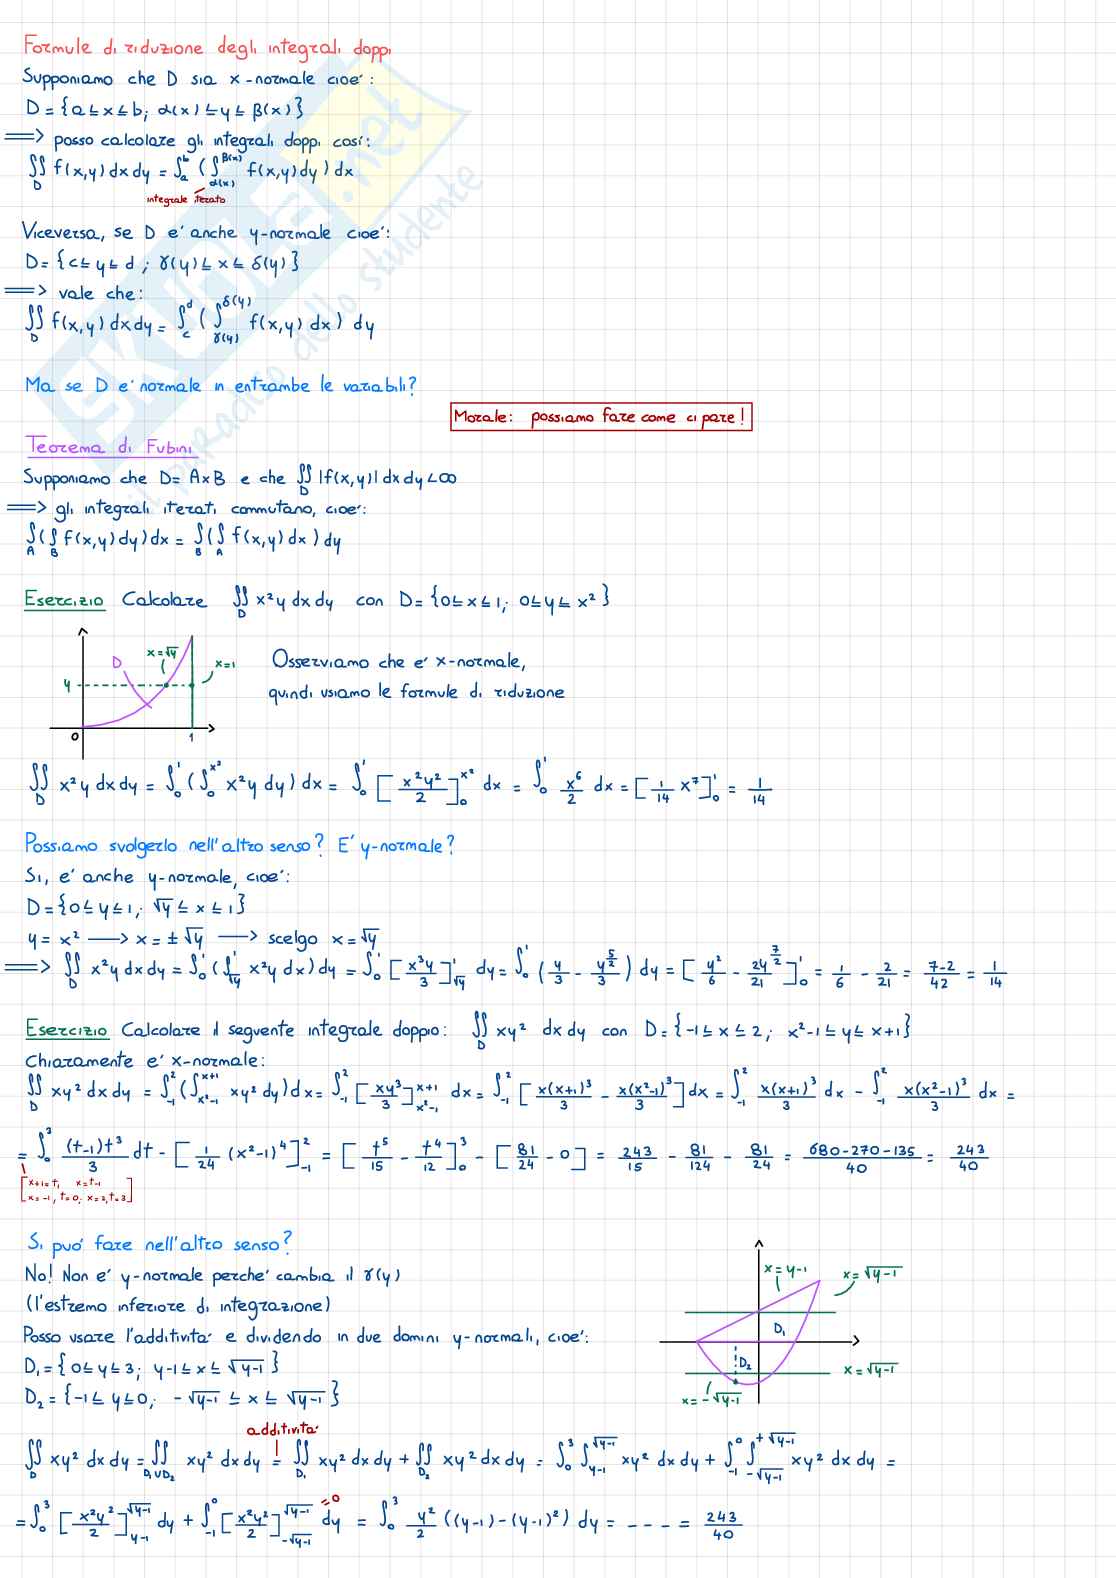 Formule di riduzione degli integrali doppi
Supponiamo che D sia x-normale cioe':
D = {a ≤ x ≤ b; α(x) ≤ y ≤ β(x)}
⟹ posso calcolare gli integrali doppi cosí:
∬_D f(x,y) dx dy = ∫_a^b (∫_α(x)^β(x) f(x,y) dy) dx
integrale iterato
Viceversa, se D e' anche y-normale cioe':
D = {c ≤ y ≤ d; γ(y) ≤ x ≤ δ(y)}
⟹ vale che:
∬_D f(x,y) dx dy = ∫_c^d (∫_γ(y)^δ(y) f(x,y) dx) dy
Ma se D e' normale in entrambe le variabili?
Morale: possiamo fare come ci pare!
Teorema di Fubini
Supponiamo che D = A×B e che ∬_D |f(x,y)| dx dy < ∞
⟹ gli integrali iterati commutano, cioe':
∫_A (∫_B f(x,y) dy) dx = ∫_B (∫_A f(x,y) dx) dy
Esercizio Calcolare ∬_D x²y dx dy con D = {0 ≤ x ≤ 1; 0 ≤ y ≤ x²}
D x=√y x=1
y
0 1
Osserviamo che e' x-normale,
quindi usiamo le formule di riduzione
∬_D x²y dx dy = ∫_0^1 (∫_0^x² x²y dy) dx = ∫_0^1 [x²y²/2]_0^x² dx = ∫_0^1 x⁶/2 dx = [1/14 x⁷]_0^1 = 1/14
Possiamo svolgerlo nell'altro senso? E' y-normale?
Si, e' anche y-normale, cioe':
D = {0 ≤ y ≤ 1; √y ≤ x ≤ 1}
y = x² ⟶ x = ± √y ⟶ scelgo x = √y
⟹ ∬_D x²y dx dy = ∫_0^1 (∫_√y^1 x²y dx) dy = ∫_0^1 [x³y/3]_√y^1 dy = ∫_0^1 (y/3 - y^(5/2)/3) dy = [y²/6 - 2y^(7/2)/21]_0^1 = 1/6 - 2/21 = 7-2/42 = 1/14
Esercizio Calcolare il seguente integrale doppio: ∬_D xy² dx dy con D = {-1 ≤ x ≤ 2; x²-1 ≤ y ≤ x+1}
Chiaramente e' x-normale:
∬_D xy² dx dy = ∫_-1^2 (∫_x²-1^x+1 xy² dy) dx = ∫_-1^2 [xy³/3]_x²-1^x+1 dx = ∫_-1^2 [x(x+1)³/3 - x(x²-1)³/3] dx = ∫_-1^2 x(x+1)³/3 dx - ∫_-1^2 x(x²-1)³/3 dx =
= ∫_0^3 (t-1)t³/3 dt - [1/24 (x²-1)⁴]_-1^2 = [t⁵/15 - t⁴/12]_0^3 - [81/24 - 0] = 243/15 - 81/124 - 81/24 = 680-270-135/40 = 243/40
[x+1=t, x=t-1
x=-1, t=0; x=2, t=3]
Si puo' fare nell'altro senso?
No! Non e' y-normale perche' cambia il γ(y)
(l'estremo inferiore di integrazione)
Posso usare l'additivita' e dividendo in due domini y-normali, cioe':
D₁ = {0 ≤ y ≤ 3; y-1 ≤ x ≤ √y-1}
D₂ = {-1 ≤ y ≤ 0; -√y-1 ≤ x ≤ √y-1}
x=y-1 x=√y-1
D₁
D₂ x=√y-1
x=-√y-1
additivita'
∬_D xy² dx dy = ∬_D₁∪D₂ xy² dx dy = ∬_D₁ xy² dx dy + ∬_D₂ xy² dx dy = ∫_0^3 ∫_y-1^√y-1 xy² dx dy + ∫_-1^0 ∫_-√y-1^+√y-1 xy² dx dy =
= ∫_0^3 [x²y²/2]_y-1^√y-1 dy + ∫_-1^0 [x²y²/2]_-√y-1^√y-1 dy =0 = ∫_0^3 y²/2 ((y-1)-(y-1)²) dy = - - - = 243/40
SKUOLA.net
il paradiso dello studente